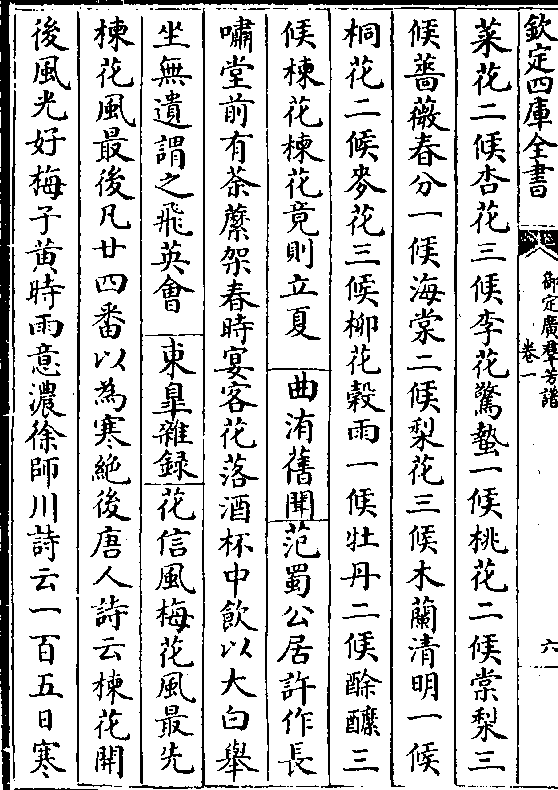 欽定四庫全書
御定廣羣芳譜
卷一
六
菜花二候杏花三候李花驚蟄一候桃花二候棠梨三
候薔薇春分一候海棠二候梨花三候木蘭清明一候
桐花二候麥花三候柳花穀雨一候牡丹二候酴醾三
候楝花楝花竟則立夏 曲洧舊聞范蜀公居許作長
嘯堂前有荼蘼架春時宴客花落酒杯中飲以大白舉
坐無遺謂之飛英會 東臯雜録花信風梅花風最先
楝花風最後凡廿四番以為寒絶後唐人詩云楝花開
後風光好梅子黄時雨意濃徐師川詩云一百五日寒